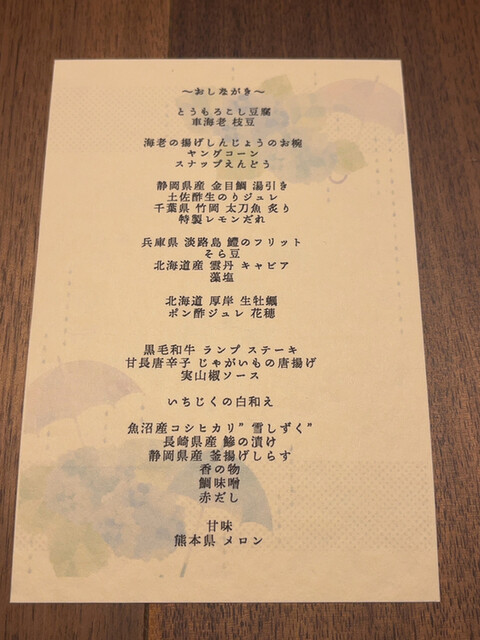 ～おしながき～
とうもろこし豆腐
車海老 枝豆
海老の揚げしんじょうのお椀
ヤングコーン
スナップえんどう
静岡県産 金目鯛 湯引き
土佐酢生のりジュレ
千葉県 竹岡 太刀魚 炙り
特製レモンだれ
兵庫県 淡路島 鱧のフリット
そら豆
北海道産 雲丹 キャビア
藻塩
北海道 厚岸 生牡蠣
ポン酢ジュレ 花穂
黒毛和牛 ランプ ステーキ
甘長唐辛子 じゃがいもの唐揚げ
実山椒ソース
いちじくの白和え
魚沼産コシヒカリ” 雪しずく”
長崎県産 鯵の漬け
静岡県産 釜揚げしらす
香の物
鯛味噌
赤だし
甘味
熊本県 メロン